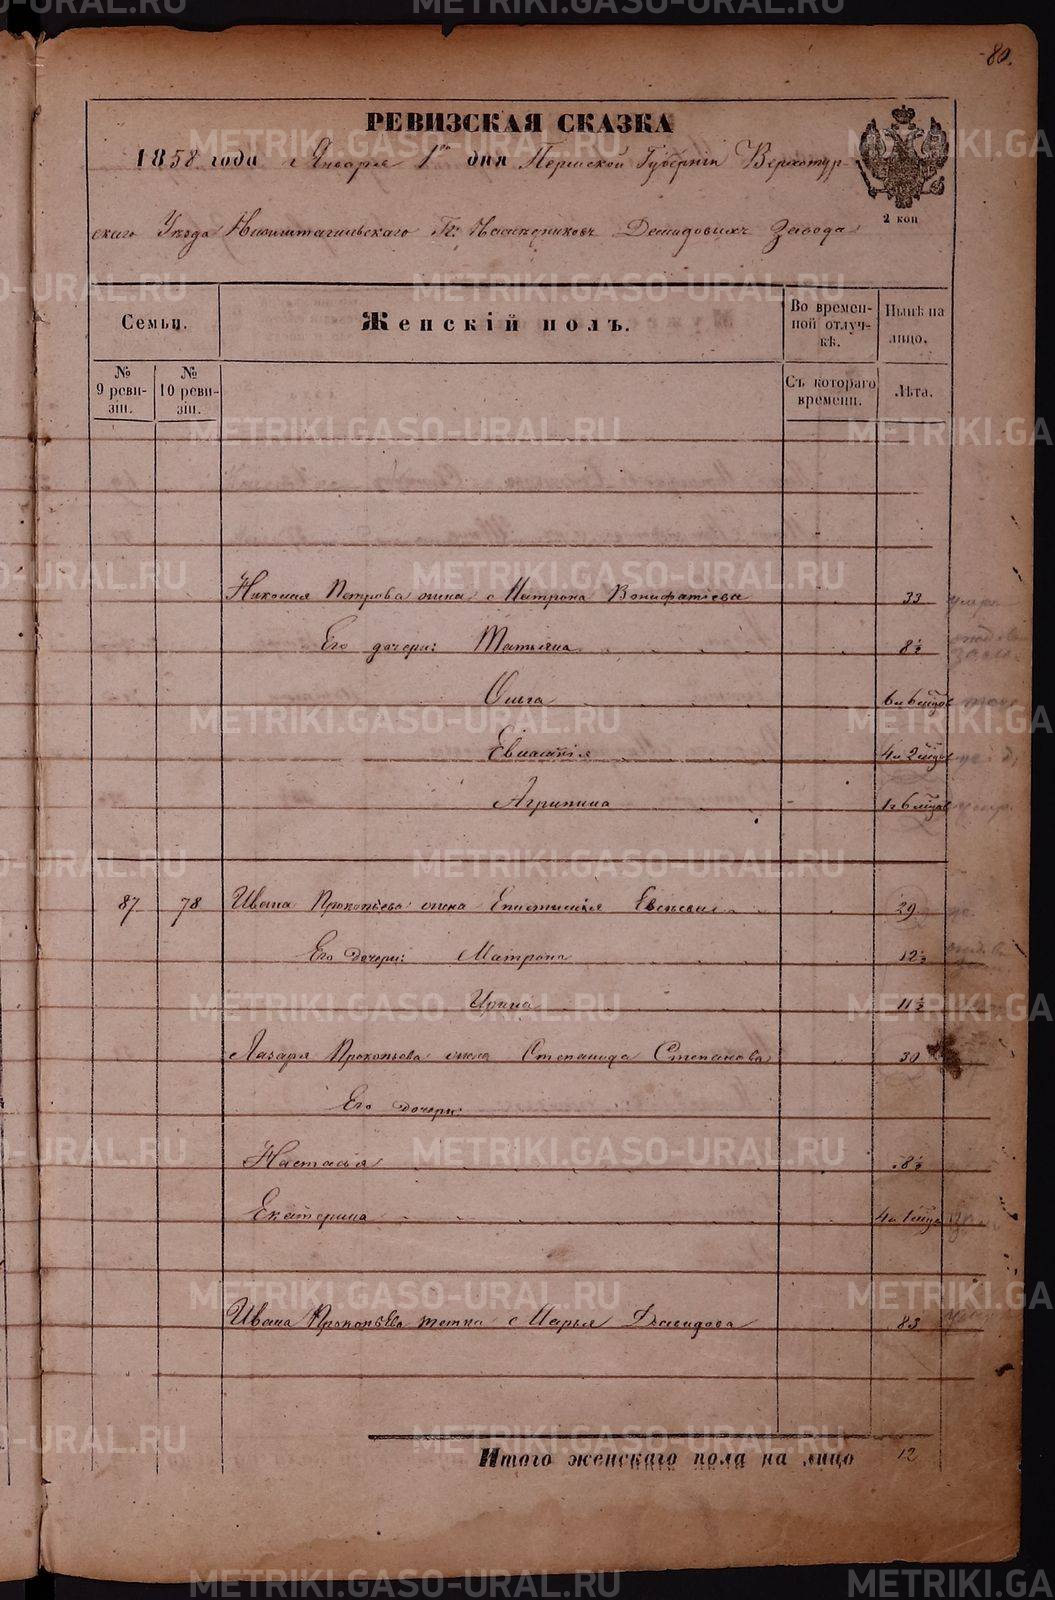 80.
РЕВИЗСКАЯ СКАЗКА
1858 года Января 1го дня Пермской Губерніи Верхотур-
скаго Уѣзда Нижнетагильскаго Гг: Наслѣдниковъ Демидовыхъ Завода
2 коп
Семьи.
Женскій полъ.
Во времен-
ной отлуч-
кѣ.
Нынѣ на
лицо.
№
9 реви-
зіи.
№
10 реви-
зіи.
Съ котораго
времени.
Лѣта.
Николая Петрова жена Матрона Вонифатіева 33
Его дочери: Татьяна 8½
Ольга 6 и 6 мцов
Евлампія 4 и 2 мцов
Агрипина 1 и 6 мцов
87 78 Ивана Прокопьева жена Епистимія Евсѣева 29
Его дочери: Матрона 12½
Ирина 11½
Лазаря Прокопьева жена Степанида Степанова 30
Его дочери:
Настасья 8½
Екатерина 4 и 1 мца
Ивана Прокопьева тетка Марья Давидова 83
Итого женскаго пола на лицо 12
METRIKI.GASO-URAL.RU